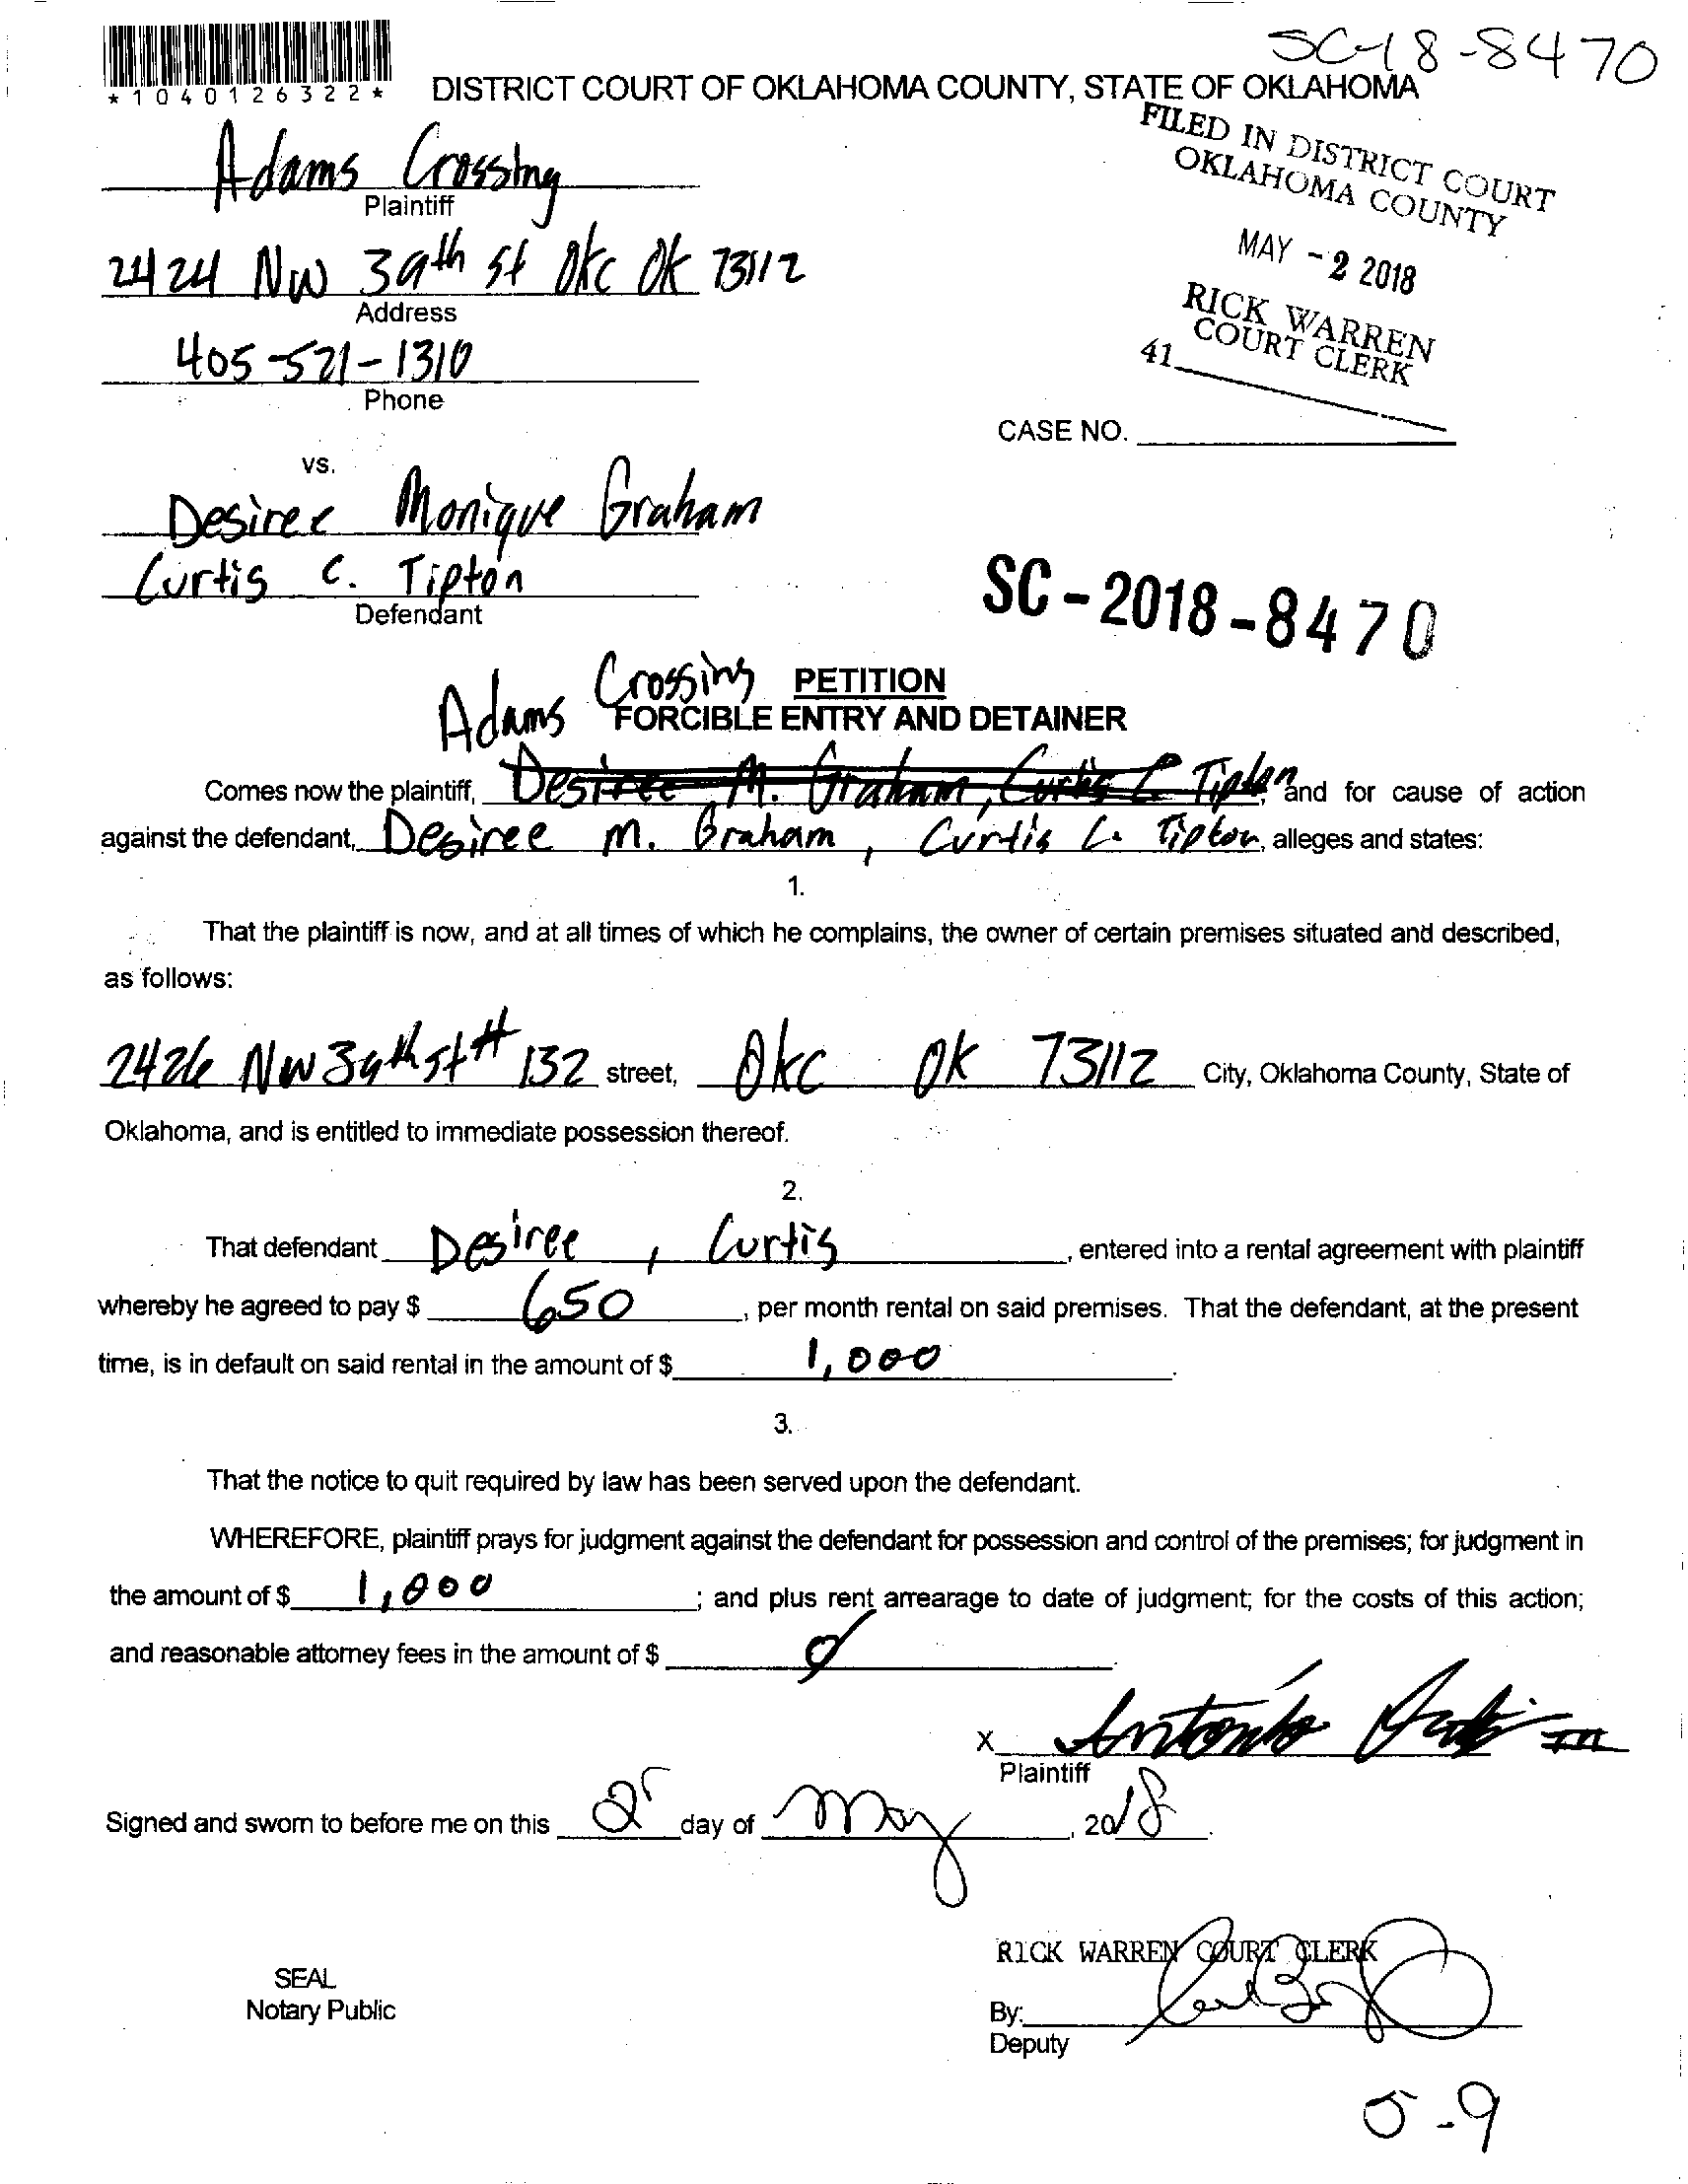 SC-18-8470
*1040126322*
DISTRICT COURT OF OKLAHOMA COUNTY, STATE OF OKLAHOMA
FILED IN DISTRICT COURT
OKLAHOMA COUNTY
MAY - 2 2018
RICK WARREN
COURT CLERK
41
Adams Crossing
Plaintiff
2424 NW 39th st Okc Ok 73112
Address
405-521-1310
Phone
CASE NO.
vs.
Desiree Monique Graham
Curtis C. Tipton
Defendant
SC-2018-8470
PETITION
Adams Crossing
FORCIBLE ENTRY AND DETAINER
Comes now the plaintiff, Desiree M. Graham, Curtis C Tipton, and for cause of action
against the defendant, Desiree M. Graham, Curtis C. Tipton, alleges and states:
1.
That the plaintiff is now, and at all times of which he complains, the owner of certain premises situated and described,
as follows:
2426 NW 39th st # 132 street, Okc Ok 73112 City, Oklahoma County, State of
Oklahoma, and is entitled to immediate possession thereof.
2.
That defendant Desiree, Curtis, entered into a rental agreement with plaintiff
whereby he agreed to pay $ 650, per month rental on said premises. That the defendant, at the present
time, is in default on said rental in the amount of $ 1,000.
3.
That the notice to quit required by law has been served upon the defendant.
WHEREFORE, plaintiff prays for judgment against the defendant for possession and control of the premises; for judgment in
the amount of $ 1,000; and plus rent arrearage to date of judgment; for the costs of this action;
and reasonable attorney fees in the amount of $ 0.
X Antonio III
Plaintiff
Signed and sworn to before me on this 2 day of May, 2018.
RICK WARREN COURT CLERK
SEAL
Notary Public
By:
Deputy
5-9